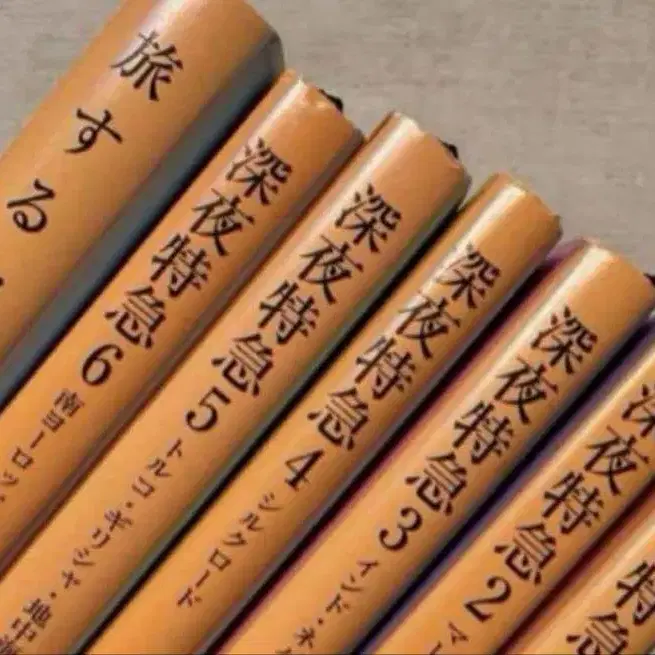 旅する
深夜特急6 南ヨーロッ
深夜特急5 トルコ・ギリシャ・地中海
深夜特急4 シルクロード
深夜特急3 インド・ネ
深夜特急2 マ
深夜特急
深夜特